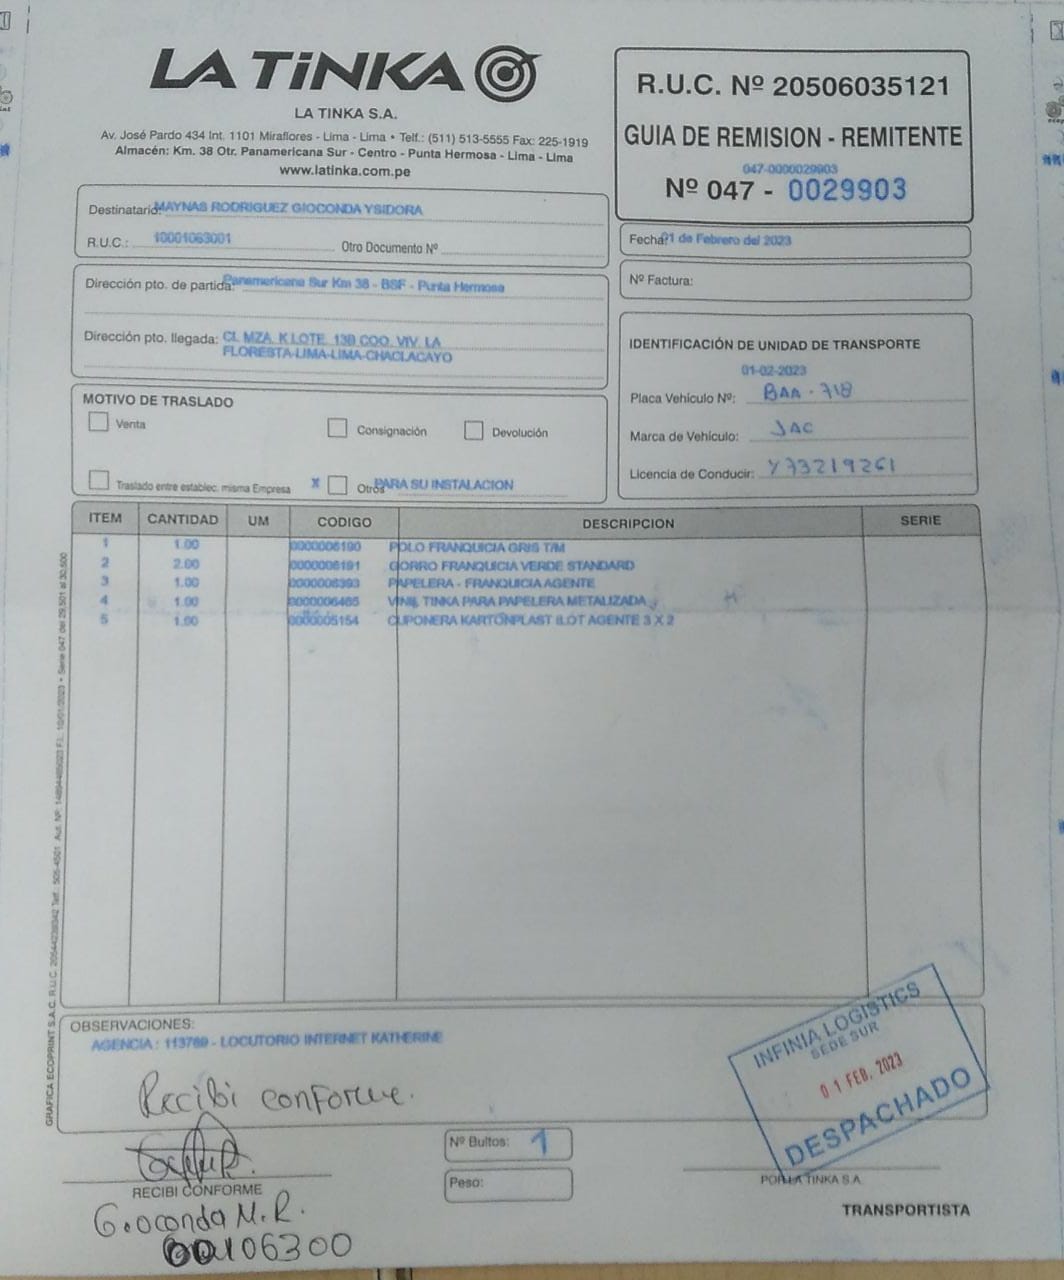 LA TiNKA
LA TINKA S.A.
Av. José Pardo 434 Int. 1101 Miraflores - Lima - Lima • Telf.: (511) 513-5555 Fax: 225-1919
Almacén: Km. 38 Otr. Panamericana Sur - Centro - Punta Hermosa - Lima - Lima
www.latinka.com.pe
R.U.C. Nº 20506035121
GUIA DE REMISION - REMITENTE
047-0000029903
Nº 047 - 0029903
Destinatario: MAYNAS RODRIGUEZ GIOCONDA YSIDORA
R.U.C.: 10001063001 Otro Documento Nº
Fecha: 01 de Febrero del 2023
Nº Factura:
Dirección pto. de partida: Panamericana Sur Km 38 - BSF - Punta Hermosa
Dirección pto. llegada: CL MZA. K LOTE. 13B COO. VIV. LA
FLORESTA-LIMA-LIMA-CHACLACAYO
IDENTIFICACIÓN DE UNIDAD DE TRANSPORTE
01-02-2023
Placa Vehículo Nº: BAA - 718
Marca de Vehículo: JAC
Licencia de Conducir: Y73219261
MOTIVO DE TRASLADO
Venta Consignación Devolución
Traslado entre establec. misma Empresa X Otros PARA SU INSTALACION
ITEM CANTIDAD UM CODIGO DESCRIPCION SERIE
1 1.00 0000006190 POLO FRANQUICIA GRIS T/M
2 2.00 0000006191 GORRO FRANQUICIA VERDE STANDARD
3 1.00 0000006393 PAPELERA - FRANQUICIA AGENTE
4 1.00 0000006465 VINIL TINKA PARA PAPELERA METALIZADA
5 1.00 0000005154 CUPONERA KARTONPLAST ILOT AGENTE 3 X 2
OBSERVACIONES:
AGENCIA : 113769 - LOCUTORIO INTERNET KATHERINE
Recibi conforme.
INFINIA LOGISTICS
SEDE SUR
01 FEB. 2023
DESPACHADO
Nº Bultos: 1
Peso:
RECIBI CONFORME
POR LA TINKA S.A.
TRANSPORTISTA
Gioconda M. R.
00106300